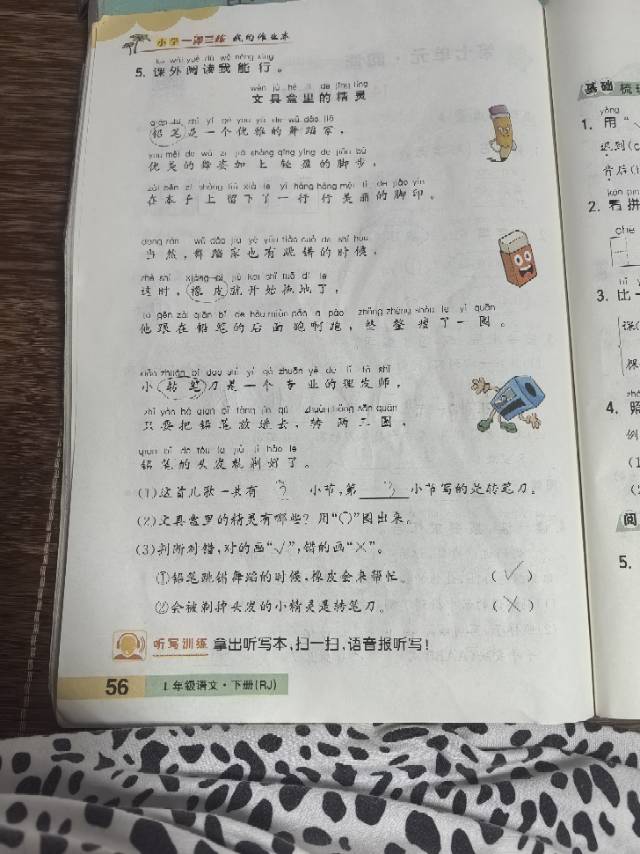 小学一课三练 我的作业本
kè wài yuè dú wǒ néng xíng
5. 课外阅读我能行。
wén jù hé lǐ de jīng líng
文具盒里的精灵
铅笔是一个优雅的舞蹈家，
优美的舞姿加上轻盈的脚步，
zài běn zi shàng liú xià le yì háng háng měi lì de jiǎo yìn
在本子上留下了一行行美丽的脚印。
dāng rán wǔ dǎo jiā yě yǒu tiào cuò de shí hou
当然，舞蹈家也有跳错的时候，
zhè shí xiàng pí jiù kāi shǐ tuō dì le
这时，橡皮就开始拖地了，
tā gēn zài qiān bǐ de hòu miàn pǎo a pǎo zhěng zhěng shòu le yì quān
他跟在铅笔的后面跑啊跑，整整瘦了一圈。
小转笔刀是一个专业的理发师，
只要把铅笔放进去，转两三圈，
铅笔的头发就剃好了。
(1)这首儿歌一共有 3 小节，第 3 小节写的是转笔刀。
(2)文具盒里的精灵有哪些？用“○”圈出来。
(3)判断对错，对的画“√”，错的画“×”。
①铅笔跳错舞蹈的时候，橡皮会来帮忙。 （ √ ）
②会被剃掉头发的小精灵是转笔刀。 （ × ）
听写训练 拿出听写本，扫一扫，语音报听写！
56 1年级语文·下册(RJ)
基础梳
1. 用“
2. 看拼
chē
3. 比一
4. 照
例
阅
5.